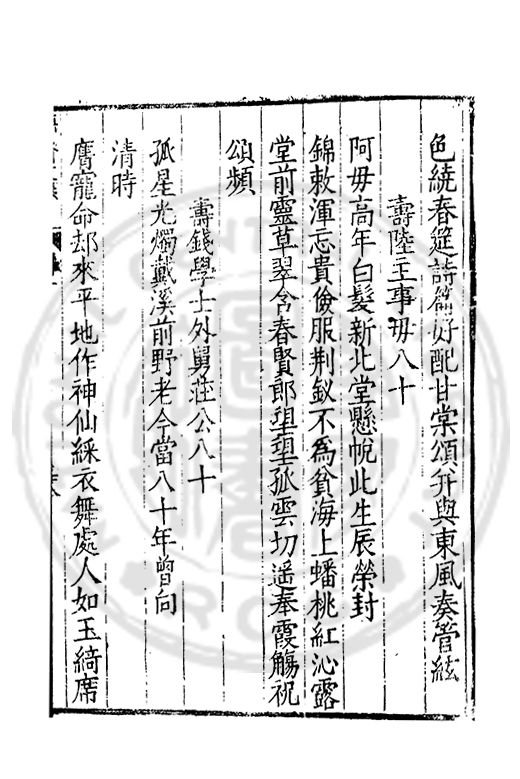 色繞春筵詩篇好配甘棠頌并與東風奏管絃
壽陸主事母八十
阿母高年白髮新北堂懸帨此生辰榮封
錦敕渾忘貴儉服荆釵不為貧海上蟠桃紅沁露
堂前靈草翠含春賢郎望望孤雲切遥奉霞觴祝
頌頻
壽錢學士外舅莊公八十
孤星光燭戴溪前野老今當八十年曾向
清時
膺寵命却來平地作神仙綵衣舞處人如玉綺席